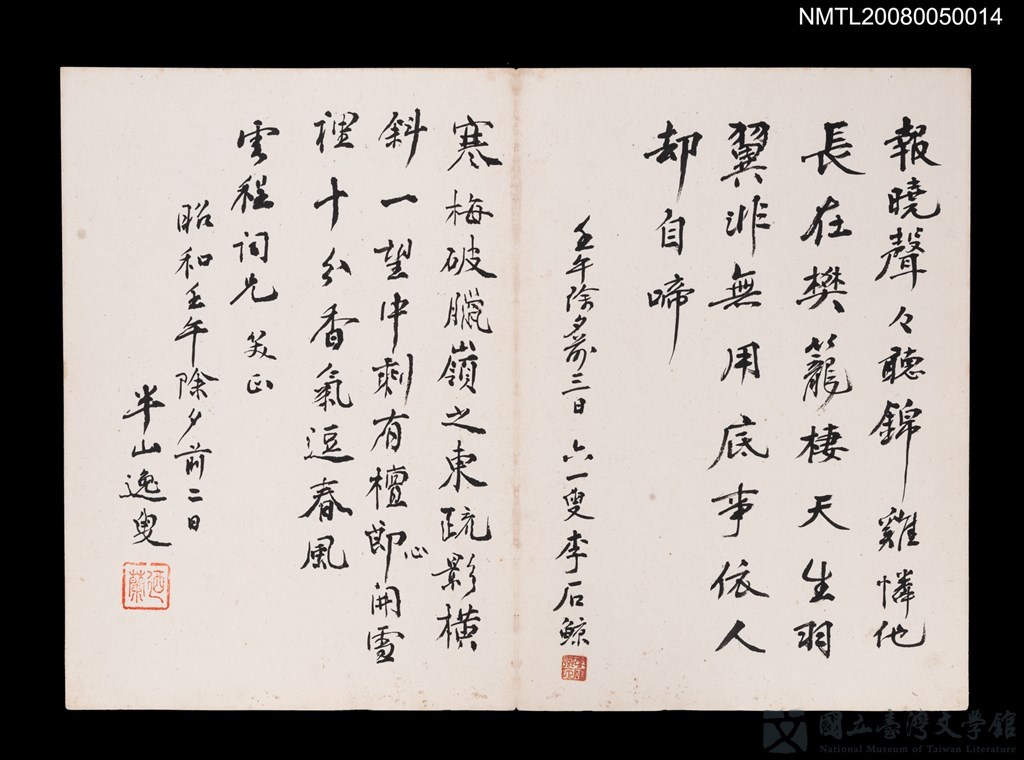 NMTL20080050014
報曉聲々聽錦雞憐他
長在樊籠棲天生羽
翼非無用底事依人
却自啼
壬午除夕前三日 六一叟李石鯨
寒梅破臘嶺之東疏影橫
斜一望中剩有檀心即開雪
裡十分香氣逗春風
雲程詞兄 笑正
昭和壬午除夕前二日
半山逸叟
國立臺灣文學館
National Museum of Taiwan Literature